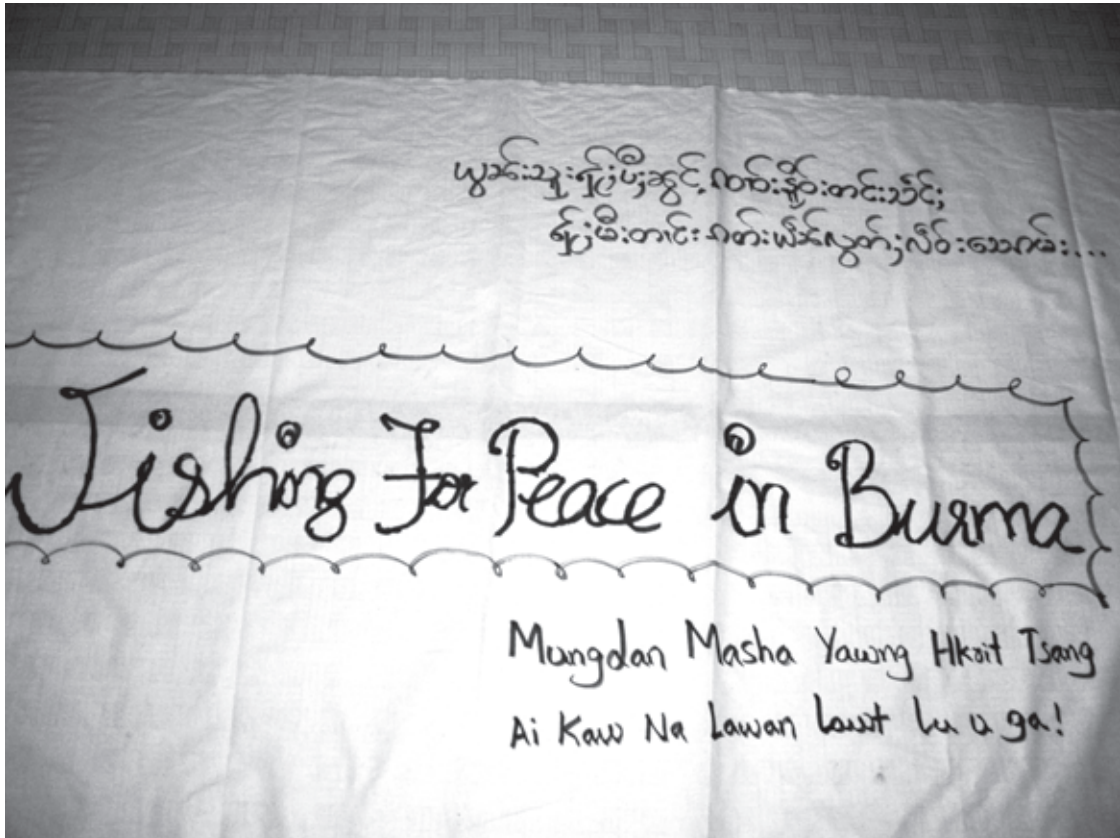 ယွၼ်းသူးႁႂ်ႈပီႈၼွင်ႉ တင်းသဵင်ႈ
ႁႂ်ႈမီးတၢင်းၵတ်းယဵၼ်လွတ်ႈလႅဝ်းသေၵမ်း...
Wishing For Peace in Burma
Mungdan Masha Yawng Hkrit Tsang
Ai Kaw Na Lawan Lawt Lu u ga!